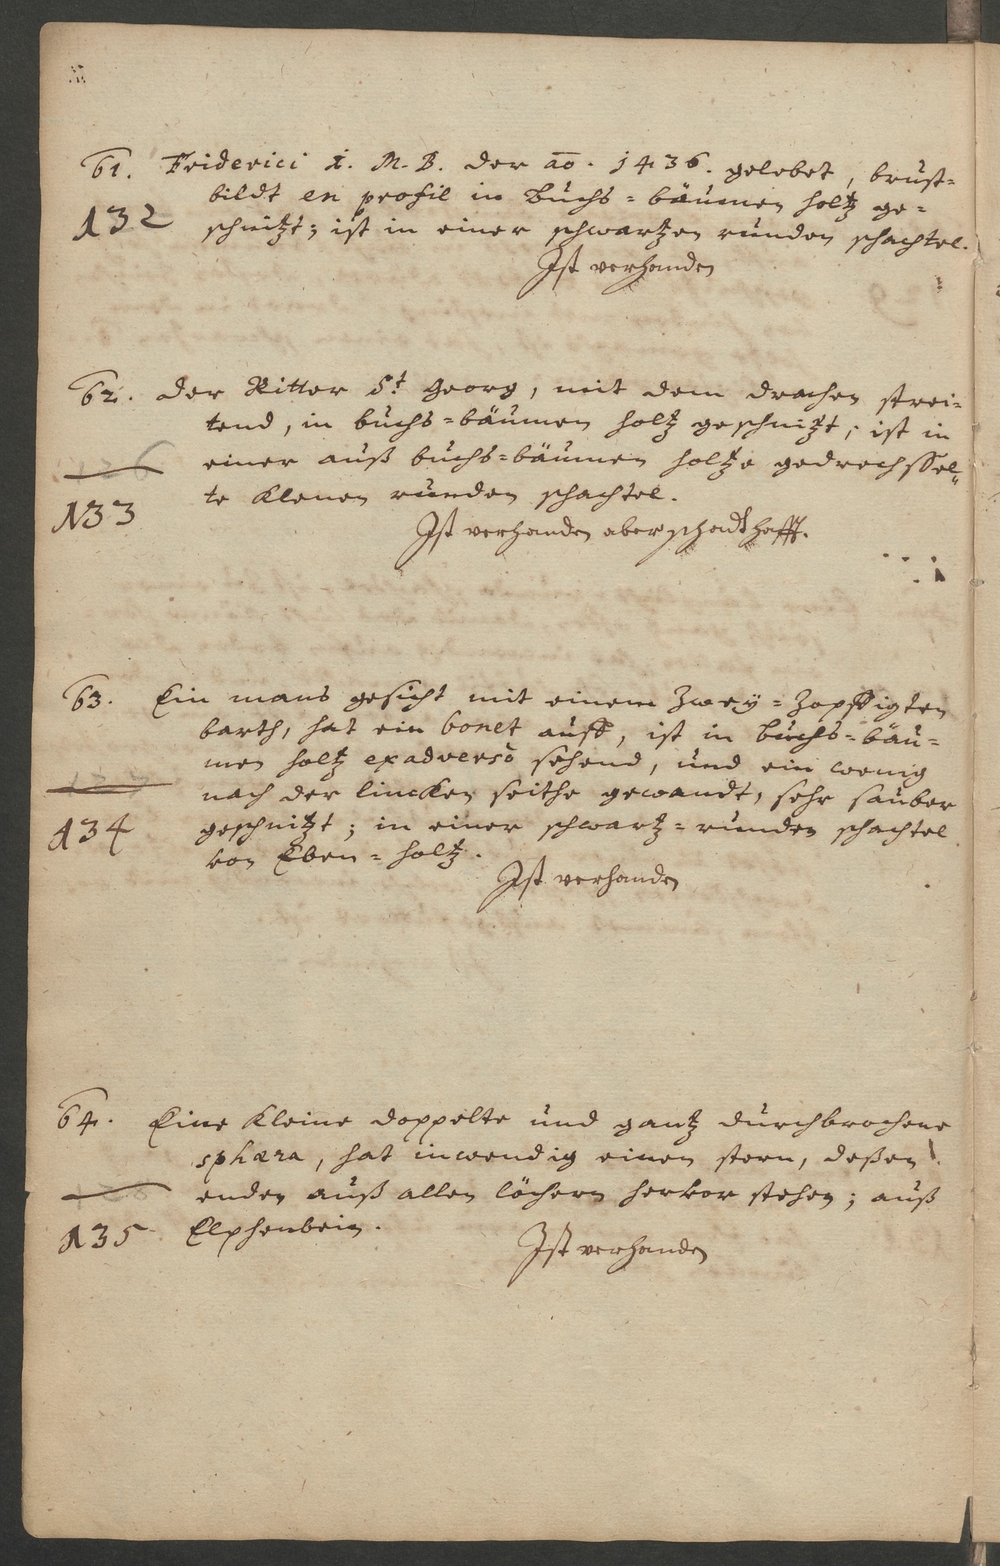 61. Friderici I. M. B. der ao. 1436. gelebet, brust=
bildt en profil in Buchs=bäumen holtz ge=
132 schnitzt; ist in einer schwartzen runden schachtel.
Ist verhanden
62. der Ritter St Georg, mit dem drachen strei=
tend, in buchs=bäumen holtz geschnitzt; ist in
einer auß buchs=bäumen holtze gedrechssel=
133 te klenen runden schachtel.
Ist verhanden aber schadthafft.
63. Ein mans gesicht mit einem Zwey=Zopffigten
barth, hat ein bonet auff, ist in buchs=bäu=
men holtz exadverso sehend, und ein wenig
nach der lincken seithe gewandt, sehr sauber
134 geschnitzt; in einer schwartz=runden schachtel
von Eben=holtz.
Ist verhanden
64. Eine kleine doppelte und gantz durchbrochene
sphæra, hat inwendig einen stern, deßen
enden auß allen löchern hervor stehen; auß
135 Elphenbein.
Ist verhanden